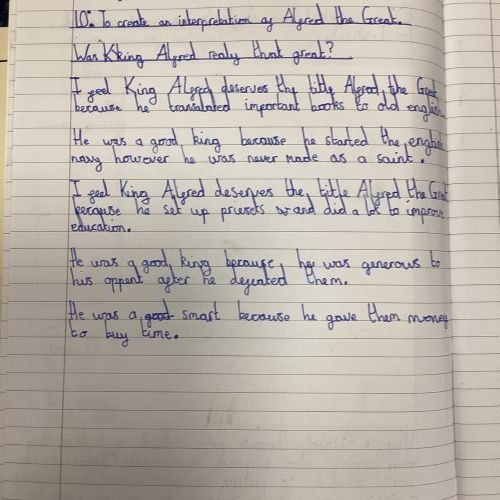 LO: To create an interpretation of Alfred the Great.
Was King Alfred realy that great?
I feel King Alfred deserves the title Alfred the Great
because he translated important books to old english.
He was a good king because he started the english
navy however he was never made as a saint.
I feel King Alfred deserves the title Alfred the Great
because he set up priests and did a lot to improve
education.
He was a good king because, he was generous to
his oppent after he defeated them.
He was a good smart because he gave them money
to buy time.